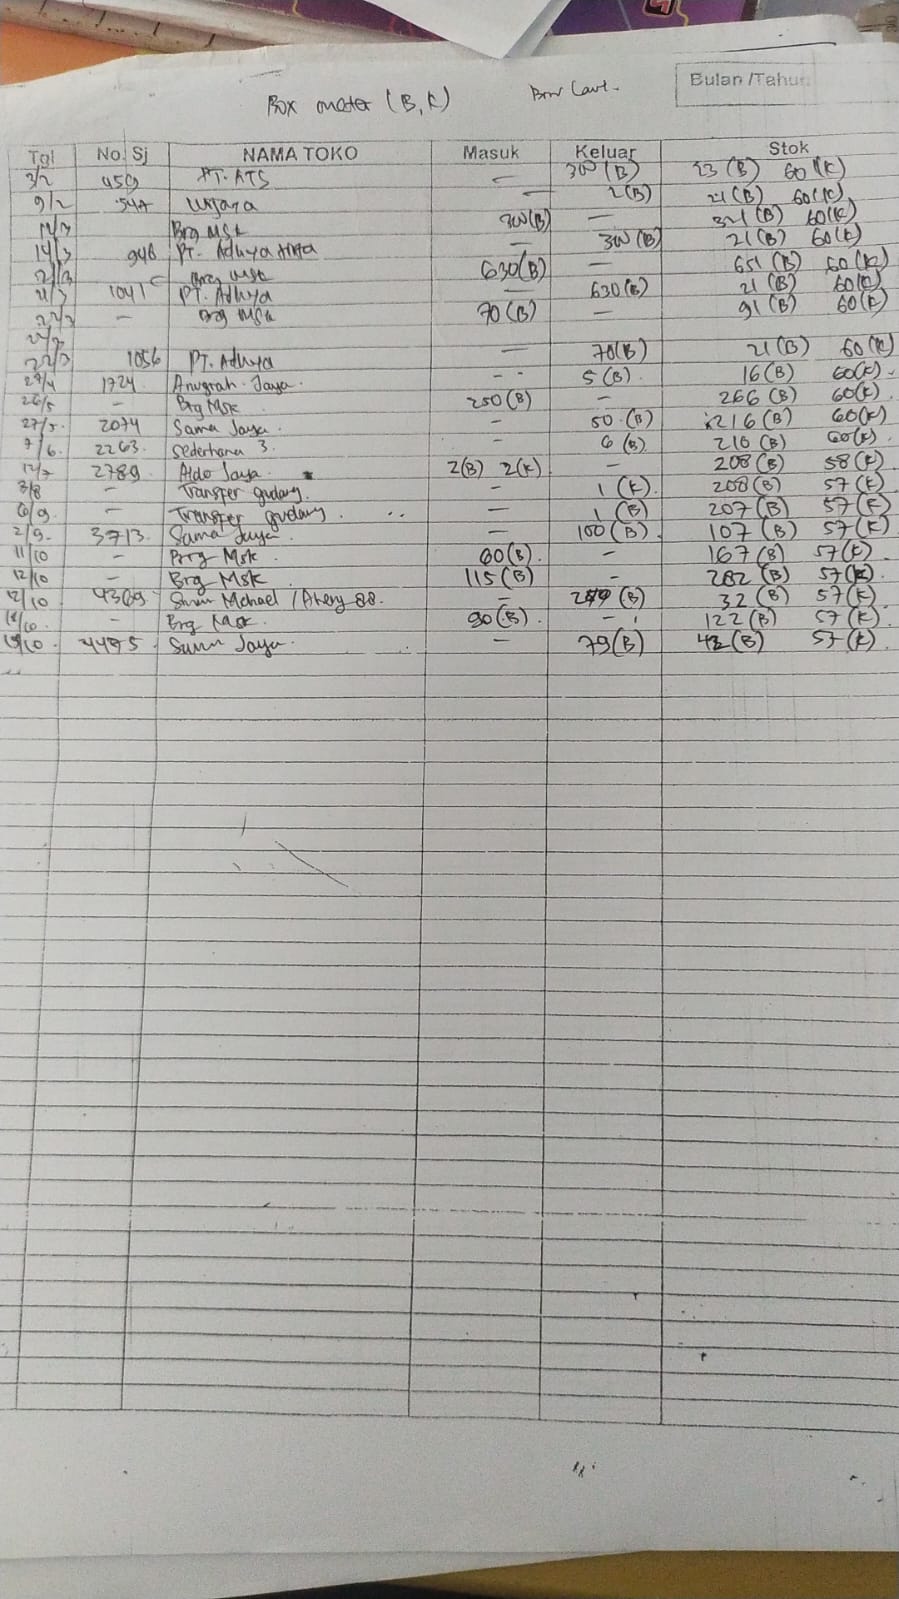 Box meter (B,K)
Bulan /Tahun
Tgl No. Sj NAMA TOKO Masuk Keluar Stok
3/2 459 PT. ATS — 300 (B) 23 (B) 60 (K)
9/2 547 Wijaya — 2(B) 21(B) 60(K)
Brg Msk 300(B) — 321(B) 60(K)
14/3 946 PT. Adhya — 300(B) 21(B) 60(K)
21/3 Brg Msk 630(B) — 651(B) 60(K)
21/3 1041 PT. Adhya — 630(B) 21(B) 60(K)
— Brg Msk 70(B) — 91(B) 60(K)
22/3 1056 PT. Adhya — 70(B) 21(B) 60(K)
29/4 1724 Anugrah Jaya. - - 5(B) 16(B) 60(K)
26/5 — Brg Msk 250(B) — 266(B) 60(K)
27/5 2074 Sama Jaya. — 50 (B) 216(B) 60(K)
7/6. 2263 Sederhana 3. — 6(B) 210(B) 60(K)
12/7 2789 Aldo Jaya. 2(B) 2(K) — 208(B) 58(K)
3/8 — Transfer gudang. — 1(K) 208(B) 57(K)
6/9. — Transfer gudang. — 1(B) 207(B) 57(K)
2/9. 3713 Sama Jaya — 100(B) 107(B) 57(K)
11/10 — Brg Msk. 60(B). — 167(B) 57(K)
12/10 — Brg Msk 115(B) — 282(B) 57(K)
12/10 4369 88. — (B) 32(B) 57(K)
— Brg Msk. 90(B). — 122(B) 57(K)
4495 Jaya — 79(B) 42(B) 57(K)